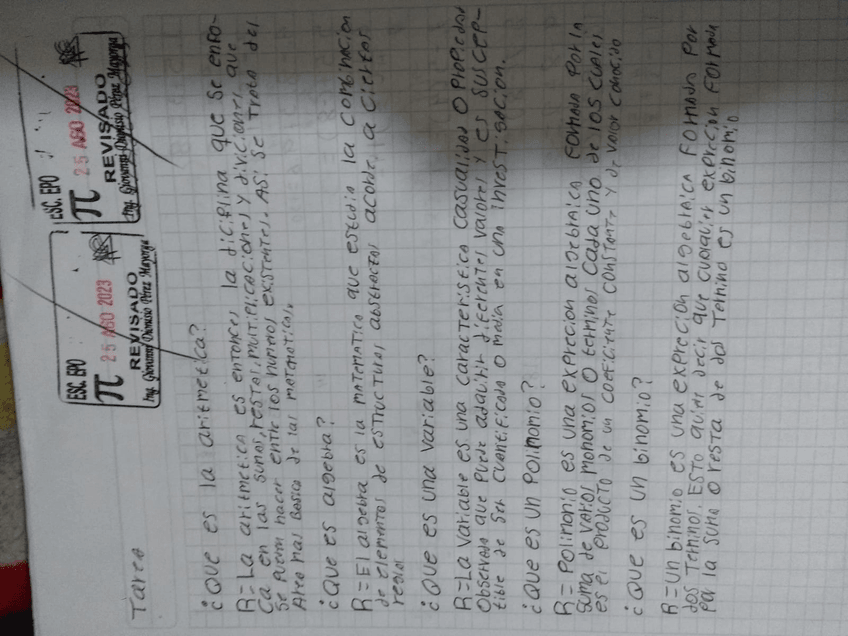 Tarea
ESC. EPO
π 25 AGO 2023
REVISADO
Ing. Giovanny Dionisio Pérez Mayorga
ESC. EPO
π 25 AGO 2023
REVISADO
Ing. Giovanny Dionisio Pérez Mayorga
¿Que es la aritmetica?
R=La aritmetica es entonces la diciplina que se enfo-
ca en las sumas, restas, multiplicaciones y diviciones, que
se pueden hacer entre los numeros existentes. Asi se trata del
Area mas basica de las matematicas.
¿Que es algebra?
R=El algebra es la matematica que estudia la combinacion
de elementos de estructuras abstractas acorde, a ciertas
reglas
¿Que es una variable?
R=La variable es una caracteristica casualidad o propiedad
observada que puede adquirir diferentes valores y es suscep-
tible de ser cuantificada o medida en una investigacion.
¿Que es un Polimonio?
R= Polimonio es una exprecion algebraica formada por la
suma de varios monomios o terminos cada uno de los cuales
es el producto de un coeficiente constante y de valor conosido
¿Que es un binomio?
R=Un binomio es una exprecion algebraica formada por
dos terminos. Esto quier decir que cualquier exprecion formada
por la suma o resta de dos termino es un binomio